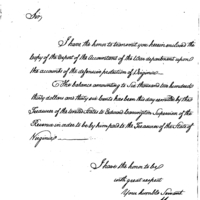 Sir,
I have the honor to transmit you herein enclosed the
copy of the report of the Accountant of the War department upon
the accounts of the defensive protection of Virginia.
The balance amounting to Six thousand two hundred
thirty dollars and thirty six cents has been this day remitted by the
Treasurer of the United States to Edward Carrington Supervisor of the
Revenue in order to be by him paid to the Treasurer of the State of
Virginia.
I have the honor to be
with great respect
Your humble Servant